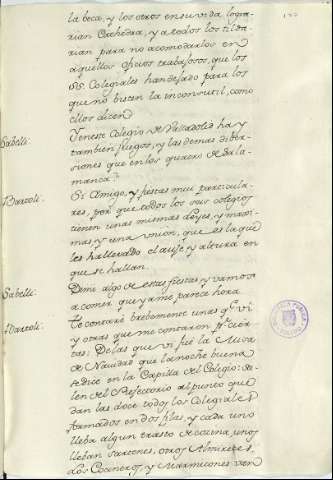 la beca, y los otros en su vida logra-
rian Cathedra, y a todos los tilda-
rian para no acomodarlos en
aquellos oficios trabajosos, que los
SS. Colegiales han dejado para los
que no visten la inconsutil, como
ellos dicen.
Sabelli. Y en este Colegio de Valladolid hay
tambien juegos, y las demas diber-
siones que en los quatro de Sala-
manca?
Bartoli. Si Amigo, y fiestas mui particula-
res, por que todos los seis colegios
tienen unas mismas Leyes, y maxi-
mas, y una union, que es la que
les ha llevado el auje y altura en
que se hallan.
Sabelli. Dime algo de estas fiestas y vamos
a comer que ya me parece hora
Bartoli. Te contaré brebemente unas qe. vi
y otras que me contaron pr. cier-
tas: De las que vi fue la Misa
de Navidad que la noche buena
se dice en la Capilla del Colegio: Sa-
len del Refectorio al punto que
dan las doce todos los Colegiales
formados en dos filas, y cada uno
lleba algun trasto de cocina, unos
lleban sartenes, otros Almireces,
Los Cocineros y Marmitones van